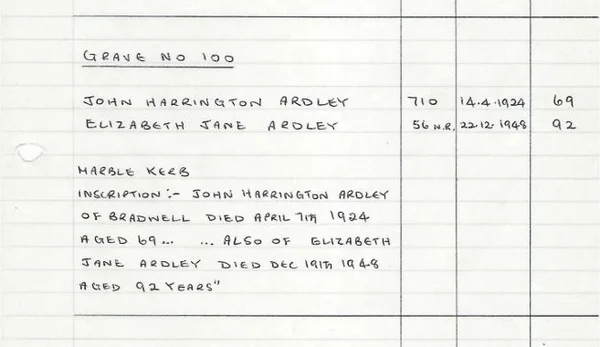 GRAVE NO 100
JOHN HARRINGTON ARDLEY 710 14.4.1924 69
ELIZABETH JANE ARDLEY 56 N.R. 22.12.1948 92
MARBLE KERB
INSCRIPTION:- JOHN HARRINGTON ARDLEY
OF BRADWELL DIED APRIL 7TH 1924
AGED 69... ... ALSO OF ELIZABETH
JANE ARDLEY DIED DEC 19TH 1948
AGED 92 YEARS"